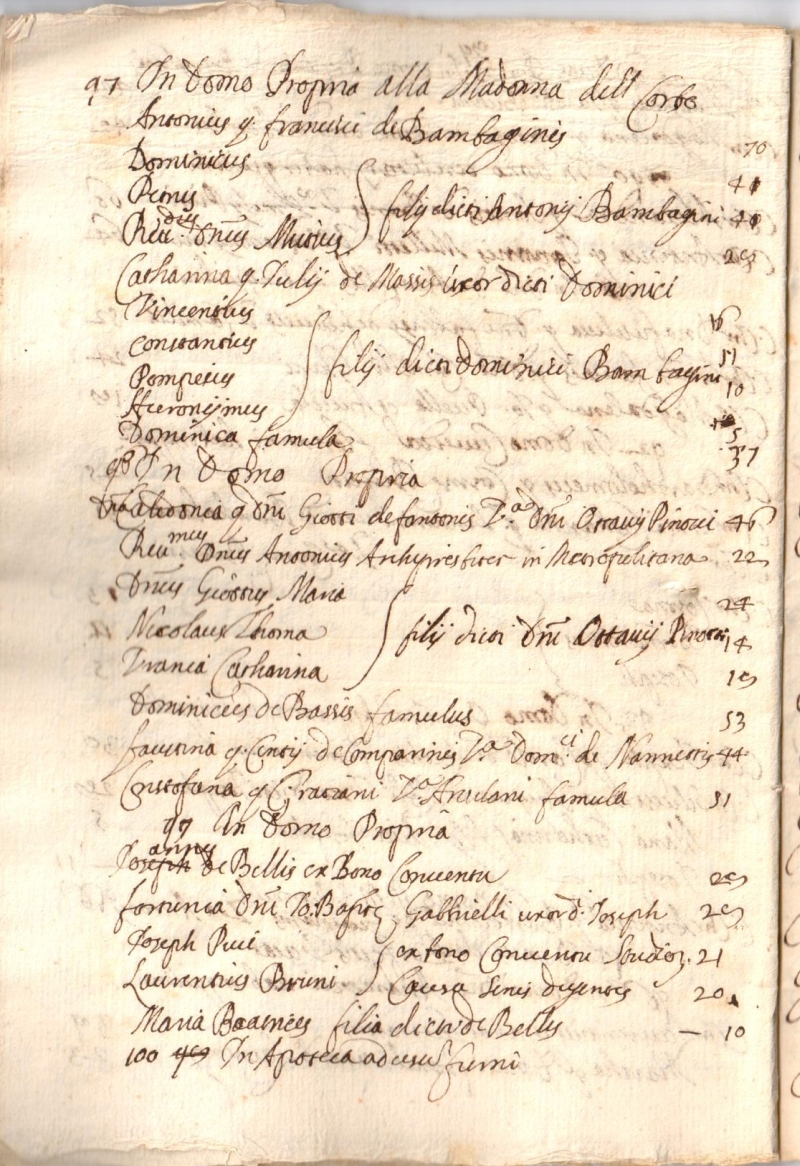 97 In Domo Propria alla Madonna dell Corbo
Antonius q. Francisci de Bambaginis 70
Dominicus 41
Petrus } filij dicti Antonij Bambagini 40
Reu.dus Dnus Mutius 29
Catharina q. Iulij de Massis uxor dicti Dominici
Vincentius 16
Constantius } filij dicti Dominici Bambagini 51
Pompeius 10
Hieronijmus
Dominica famula 5
37
98 In Domo Propria
Dna Calidonia q Dni Giotti de fantonis Va Dni Ottauij Pinocci 46
Reu.mus Dnus Antonius Archypresbiter in Metropolitana 22
Dnus Giottus Maria 24
Nicolaus Thoma } filij dicti Dni Ottauij Pinocci 14
Vrania Catharina 19
Dominicus de Bassis famulus 53
faustina q. Centij de Comparinis Va Dom.ci de Nannettis 44
Cristofana q Gratiani Va Anselani famula 51
99 In Domo Propria
Ioseph annes de Bellis ex Bono Conuentu 29
fortunia Dni Io: Baptę Gabbrielli uxor d. Ioseph 29
Ioseph Pucci } ex bono Conuentu Studior. 21
Laurentius Bruni } Causa Senis degentes 20
Maria Beatrices filia dicti de Bellis — 10
100 In Apoteca ad usu furni